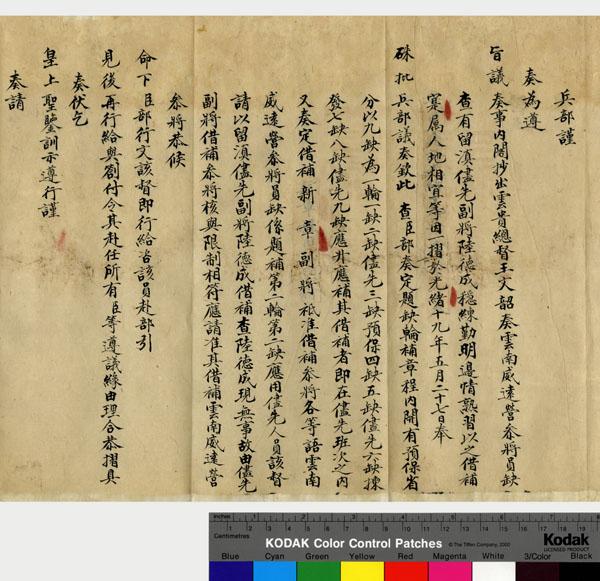 兵部謹
奏為遵
旨議奏事內閣抄出雲貴總督王文韶奏雲南威遠營叅將員缺
查有留滇儘先副將陸德成穩練勤明邊情熟習以之借補
寔属人地相宜等因一摺於光緒十九年五月二十七日奉
硃批兵部議奏欽此查臣部奏定題缺輪補章程內開有預保省
分以九缺為一輪一缺二缺儘先三缺預保四缺五缺儘先六缺揀
發七缺八缺儘先九缺應升應補其借補者即在儘先班次之內
又奏定借補新章副將祗准借補叅將各等語雲南
威遠營叅將員缺係題補第二輪第二缺應用儘先人員該督
請以留滇儘先副將陸德成借補查陸德成現無事故由儘先
副將借補叅將核與限制相符應請准其借補雲南威遠營
叅將恭候
命下臣部行文該督即行給咨該員赴部引
見後再行給與劄付令其赴任所有臣等遵議緣由理合恭摺具
奏伏乞
皇上聖鑒訓示遵行謹
奏請
inches 1 2 3 4 5 6 7
Centimetres 1 2 3 4 5 6 7 8 9 10 11 12 13 14 15 16 17 18 19
KODAK Color Control Patches
© The Tiffen Company, 2000
Kodak
LICENSED PRODUCT
Blue Cyan Green Yellow Red Magenta White 3/Color Black